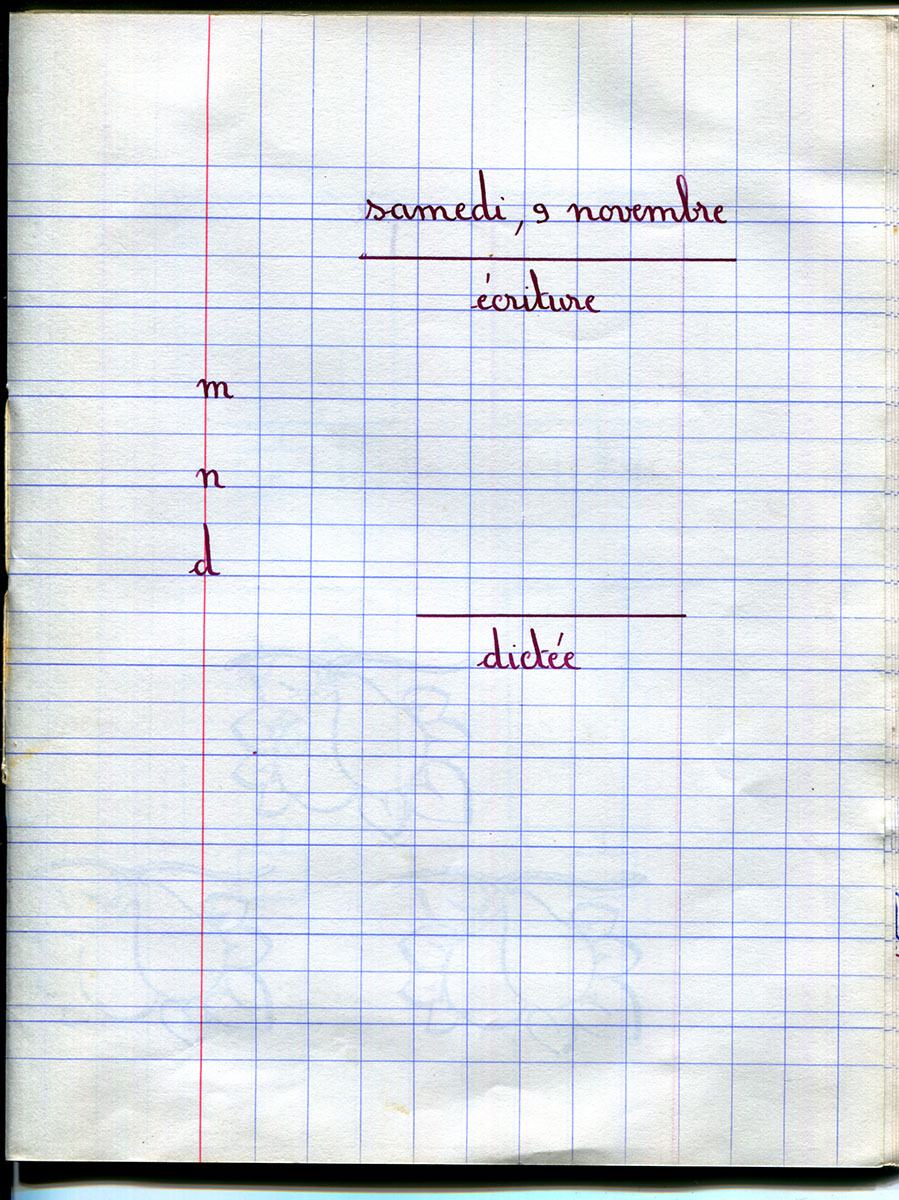 samedi, 9 novembre
écriture
m
n
d
dictée